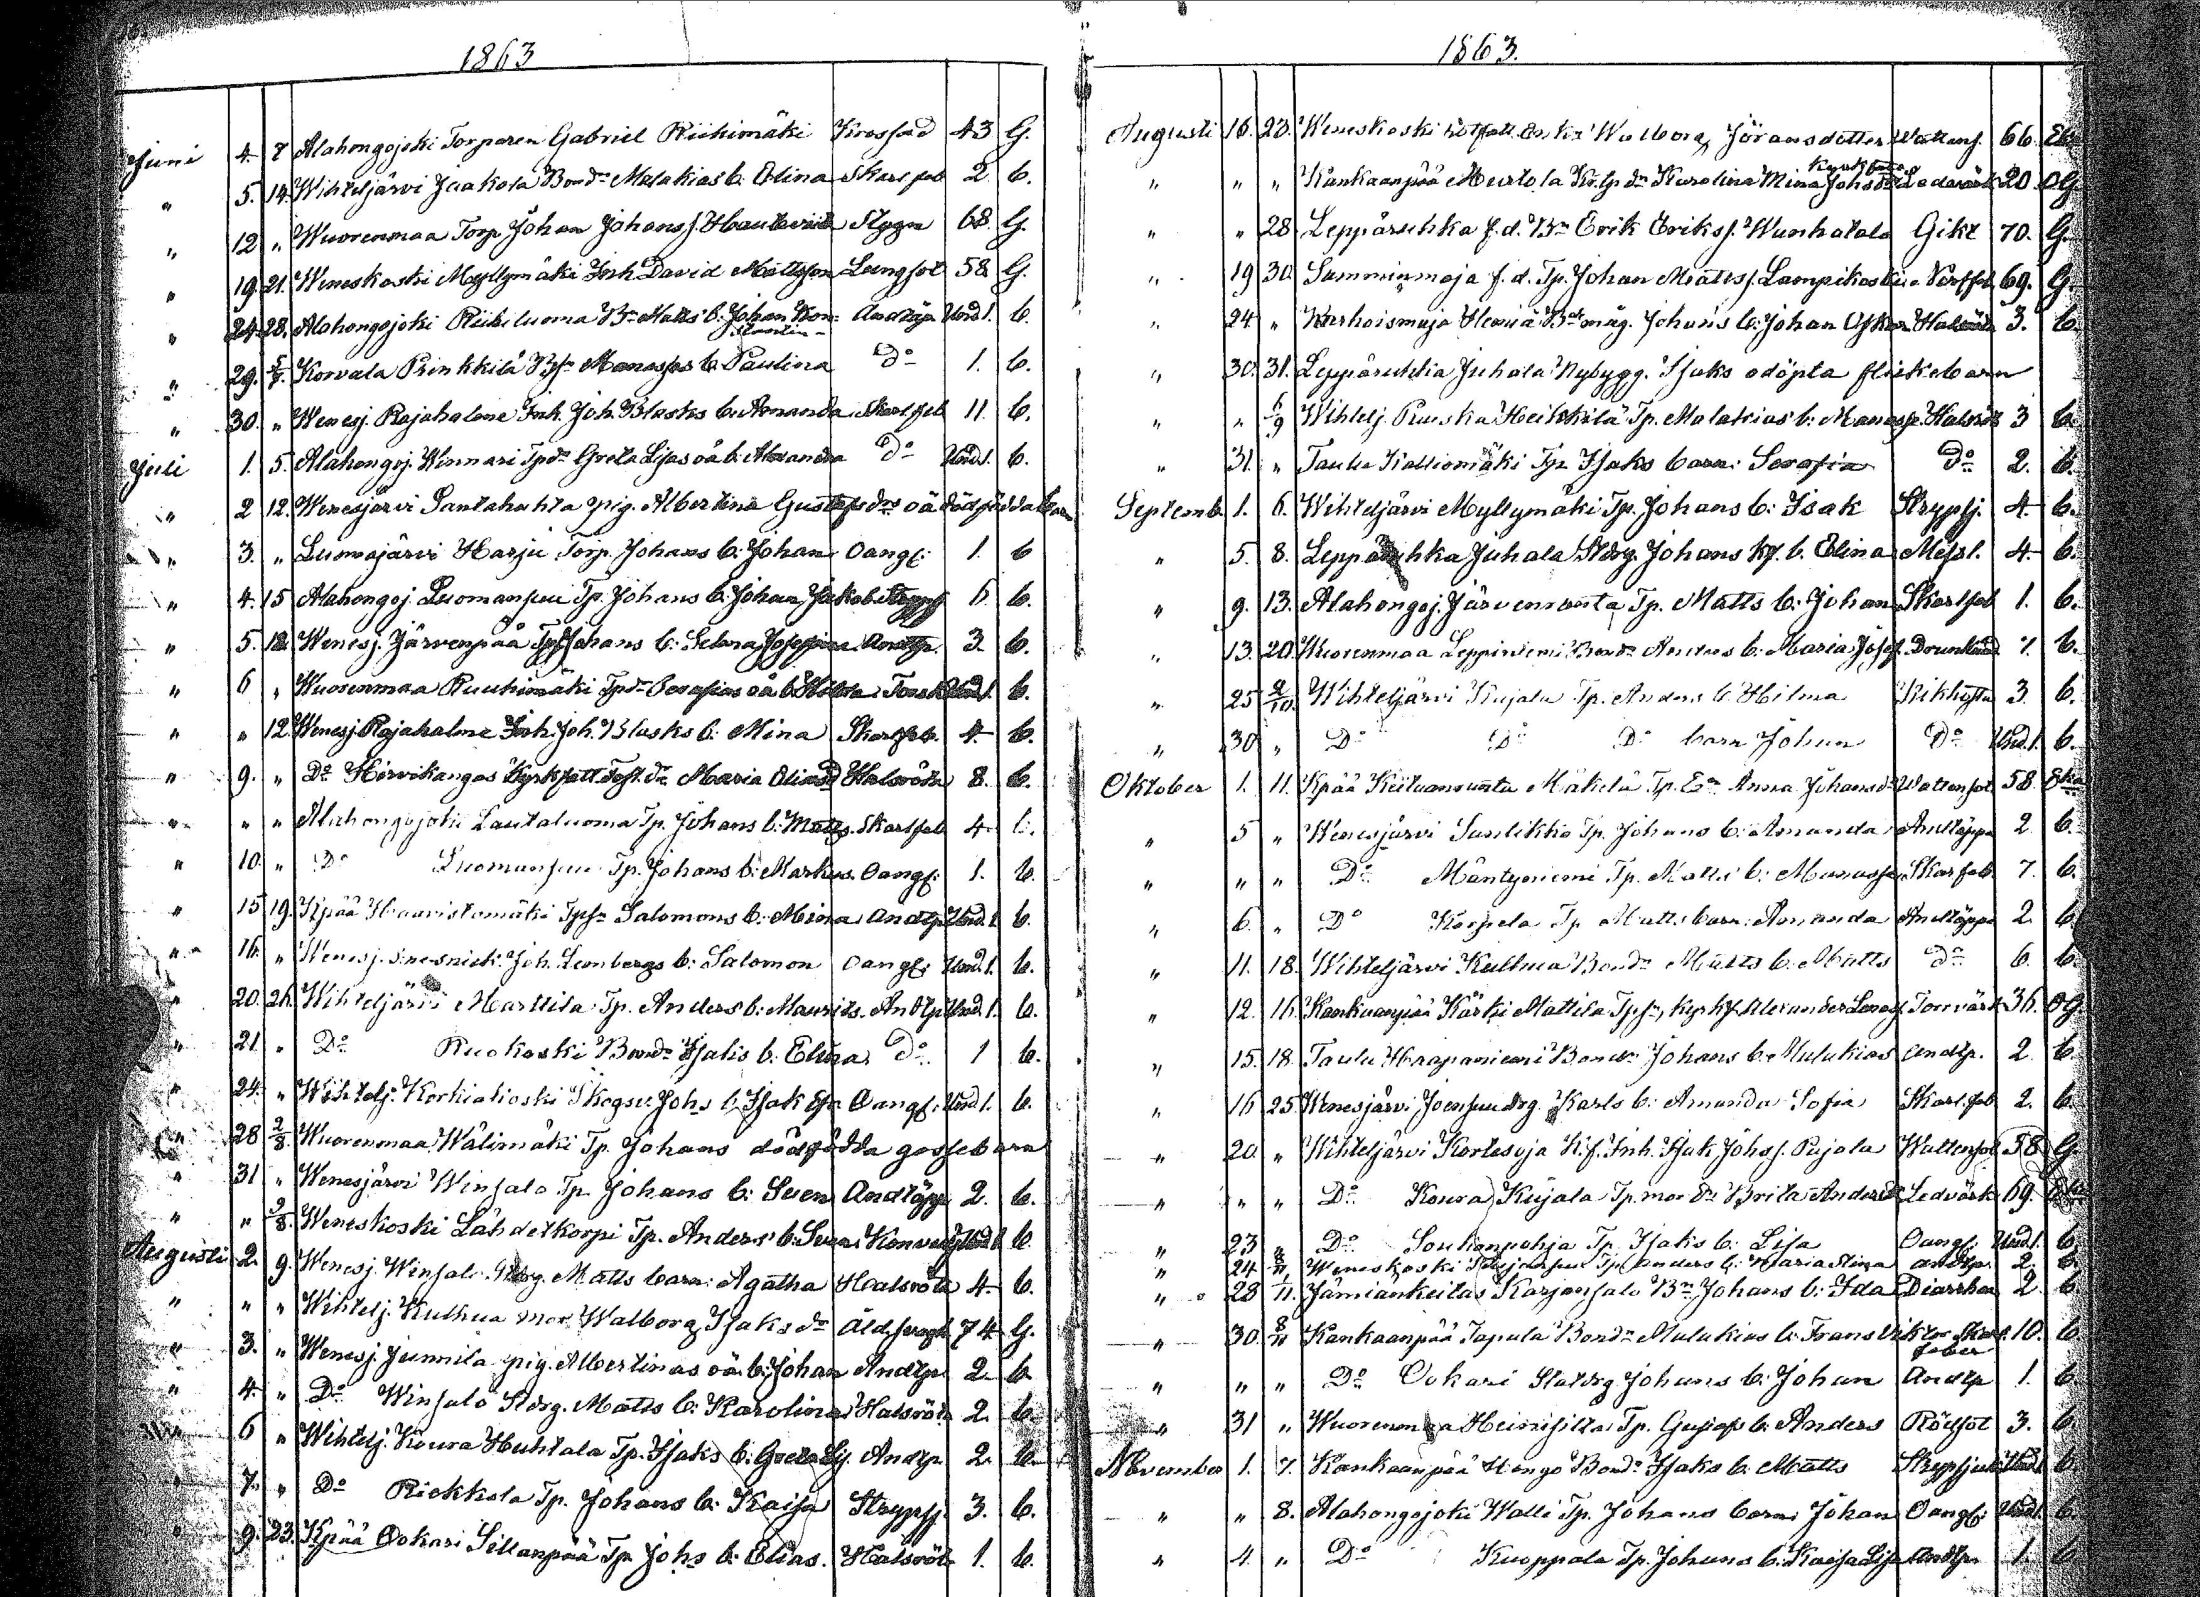 1863
Juni 4. 7 Alahongojoki Torparen Gabriel Riihimäki 43 G.
" 5. 14. Wihteljärvi Jaakola Bond. Malakias b. Elina Skarl.feb 2. b.
" 12 " Wuorenmaa Torp. Johan Johanss. Slagn 68 G.
" 19. 21. Weneskoski Myllymäki Inh. David Mattsson Lungsot 58 G.
" 24. 28. Alahongojoki Riikiluoma Bn Matts b. Johan Kon- Andtäp. Und. 1. b.
stantin
" 29. 5/7. Korvala Prinkkilä Manasses b. Paulina Do 1. b.
" 30. " Wenesj. Rajahalme Inh. Joh. Blasks b. Amanda Skarl.feb 11. b.
Juli 1. 5. Alahongoj. Kinnari Tpdr Greta Lisas oä b. Alexandra Do Und. 1. b.
" 2 12. Wenesjärvi Santahuhta pig. Albertina Gustafsdrs oä dödfödda barn
" 3. " Luomajärvi Harju Torp. Johans b. Johan Oangf. 1. b
" 4. 15 Alahongoj. Luomanpuu Tp. Johans b. Johan Jakob 6. b.
" 5. 12. Wenesj. Järvenpää Johans b. Selma Josefina Andtp. 3. b.
" 6 " Wuorenmaa Ruuhimäki Tpdr Serafias oä b. Torsk Und. 1. b.
" " 12. Wenesj. Rajahalme Inh. Joh. Blasks b. Mina Skarlfeb. 4. b.
" 9. " Do Hirvikangas Maria Eliasdr Halsröta 8. b.
" " " Alahongojoki Lautaluoma Tp. Johans b. Matts. Skarlfeb 4. b.
" 10. " Do Luomanpuu Tp. Johans b. Markus. Oangf. 1. b.
" 15 19. Kpää Haavistomäki Salomons b. Mina Andtp Und. 1. b.
" 16. " Wenesj. Joh. Lembergs b. Salomon Oangf. Und. 1. b.
" 20. 26. Wihteljärvi Marttila Tp. Anders b. Maurits. Andtp Und. 1. b.
" 21. " Do Ruokoski Bond. Isaks b. Elina Do 1 b.
" 24. " Wihtelj. Korkiakoski Skogsv. Johs b. Isak Oangf. Und. 1. b.
" 28 2/8. Wuorenmaa Wälimäki Tp. Johans dödfödda gossebarn
" 31 " Wenesjärvi Winsalo Tp. Johans b. Sven Andtäpp 2. b.
" " 9/8. Weneskoski Lähdetkorpi Tp. Anders b. b.
Augusti 2. 9. Wenesj. Winsalo Matts barn Agatha Halsröta 4. b.
" " " Wihtelj. Kulhua mor Walborg Isaksdr 74 G.
" 3. " Wenesj. Junnila pig. Albertinas oä b. Johan Andtp. 2. b.
" 4. " Do Winsalo Stdrg. Matts b. Karolina Halsröta 2. b.
" 6 " Wihtelj. Koura Huhtala Tp. Isaks b. Greta Andtp. 2. b.
" 7. " Do Riekkola Tp. Johans b. Kaisa Strypsj. 3. b.
" 9. 23. Kpää Ookari Sillanpää Tp. Johs b. Elias. Halsröt. 1. b.
1863.
Augusti 16. 23. Weneskoski Walborg Jöransdotter Wattens. 66.
" " " Kankaanpää Karolina Mina Johsdr 20 OG.
" " 28 Leppäruhka f.d. Bn Erik Erikss. Wanhatalo Gikt 70. G.
" 19 30. Samminmaja f.d. Tp. Johan Mattss. Lampikoski 69. G.
" 24 " Karhoismaja måg. Johans b. Johan Oskar Halsröt. 3. b.
" 30. 31. Leppäruhka Juhala Nybygg. Isaks odöpta flickebarn
" " 6/9 Wihtelj. Ruuska Heikkilä Tp. Malakias b. Manasse Halsröt 3 b.
" 31. " Taulu Kalliomäki Tp. Isaks barn Serafia Do 2. b.
Septemb. 1. 6. Wihteljärvi Myllymäki Tp. Johans b. Isak Strypsj. 4. b.
" 5. 8. Leppäruhka Juhala Stdrg. Johans b. Elina Mässl. 4. b.
" 9. 13. Alahongoj. Järvenranta Tp. Matts b. Johan Skarlfeb 1. b.
" 13. 20. Wuorenmaa Leppiniemi Bond. Anders b. Maria Josef. Drunknad 7. b.
" 25 4/10. Wihteljärvi Kujala Tp. Anders b. Hilma Kikhosta 3 b.
" 30 " Do Do Do barn Johan Do Und. 1. b.
Oktober 1. 11. Kpää Mäkelä Tp. Anna Johansdr Wattensot 58
" 5 " Wenesjärvi Sunlikko Tp. Johans b. Amanda Andtäppa 2 b.
" " " Do Mäntyniemi Tp. Matts b. Manasse Skarfeb. 7. b.
" 6. " Do Korpela Tp Matts barn Amanda Andtäppa 2. b
" 11. 18. Wihteljärvi Kulhua Bond. Matts b. Matts Do 6. b.
" 12. 16. Kankaanpää Kärki Mattila Alexander 36. OG.
" 15. 18. Taulu Haapaniemi Bond. Johans b. Malakias Andtp. 2. b.
" 16 25. Wenesjärvi Joensuu drg. Karls b. Amanda Sofia Skarl.feb 2. b.
" 20. " Wihteljärvi Kortesoja Inh. Isak Johss. Pajala Wattensot 58 G.
" " " Do Koura Kujala Tp. mor Brita Andersdr Ledvärk 69.
" 23 " Do Soukonpohja Tp Isaks b. Lisa Oangf. Und. 1. b.
" 24. Weneskoski Anders b. Maria Stina Andtp. 2. b.
" 28 Jämiänkeitas Karjansalo Bn Johans b. Ida Diarrhea 2. b
" 30. 8/11 Kankaanpää Tapala Bond. Malakias b. Frans Viktor Skarl. 10. b.
feber
" " " Do Ookari Statdrg Johans b. Johan Andtp 1. b
" 31 " Wuorenmaa Tp. Gustafs b. Anders Rödsot 3. b.
November 1. 7. Kankaanpää Hongo Bond. Isaks b. Matts Strypsjuk Und. 1. b.
" " 8. Alahongojoki Walli Tp. Johans barn Johan Oangf. Und. 1. b.
" 4. " Do Kuoppala Tp. Johans b. Kaisa Lisa Andtp. 1. b.